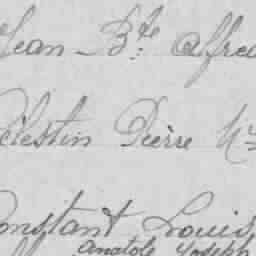 Jean Bte Alfred
Célestin Pierre
Constant Louis
Anatole Joseph